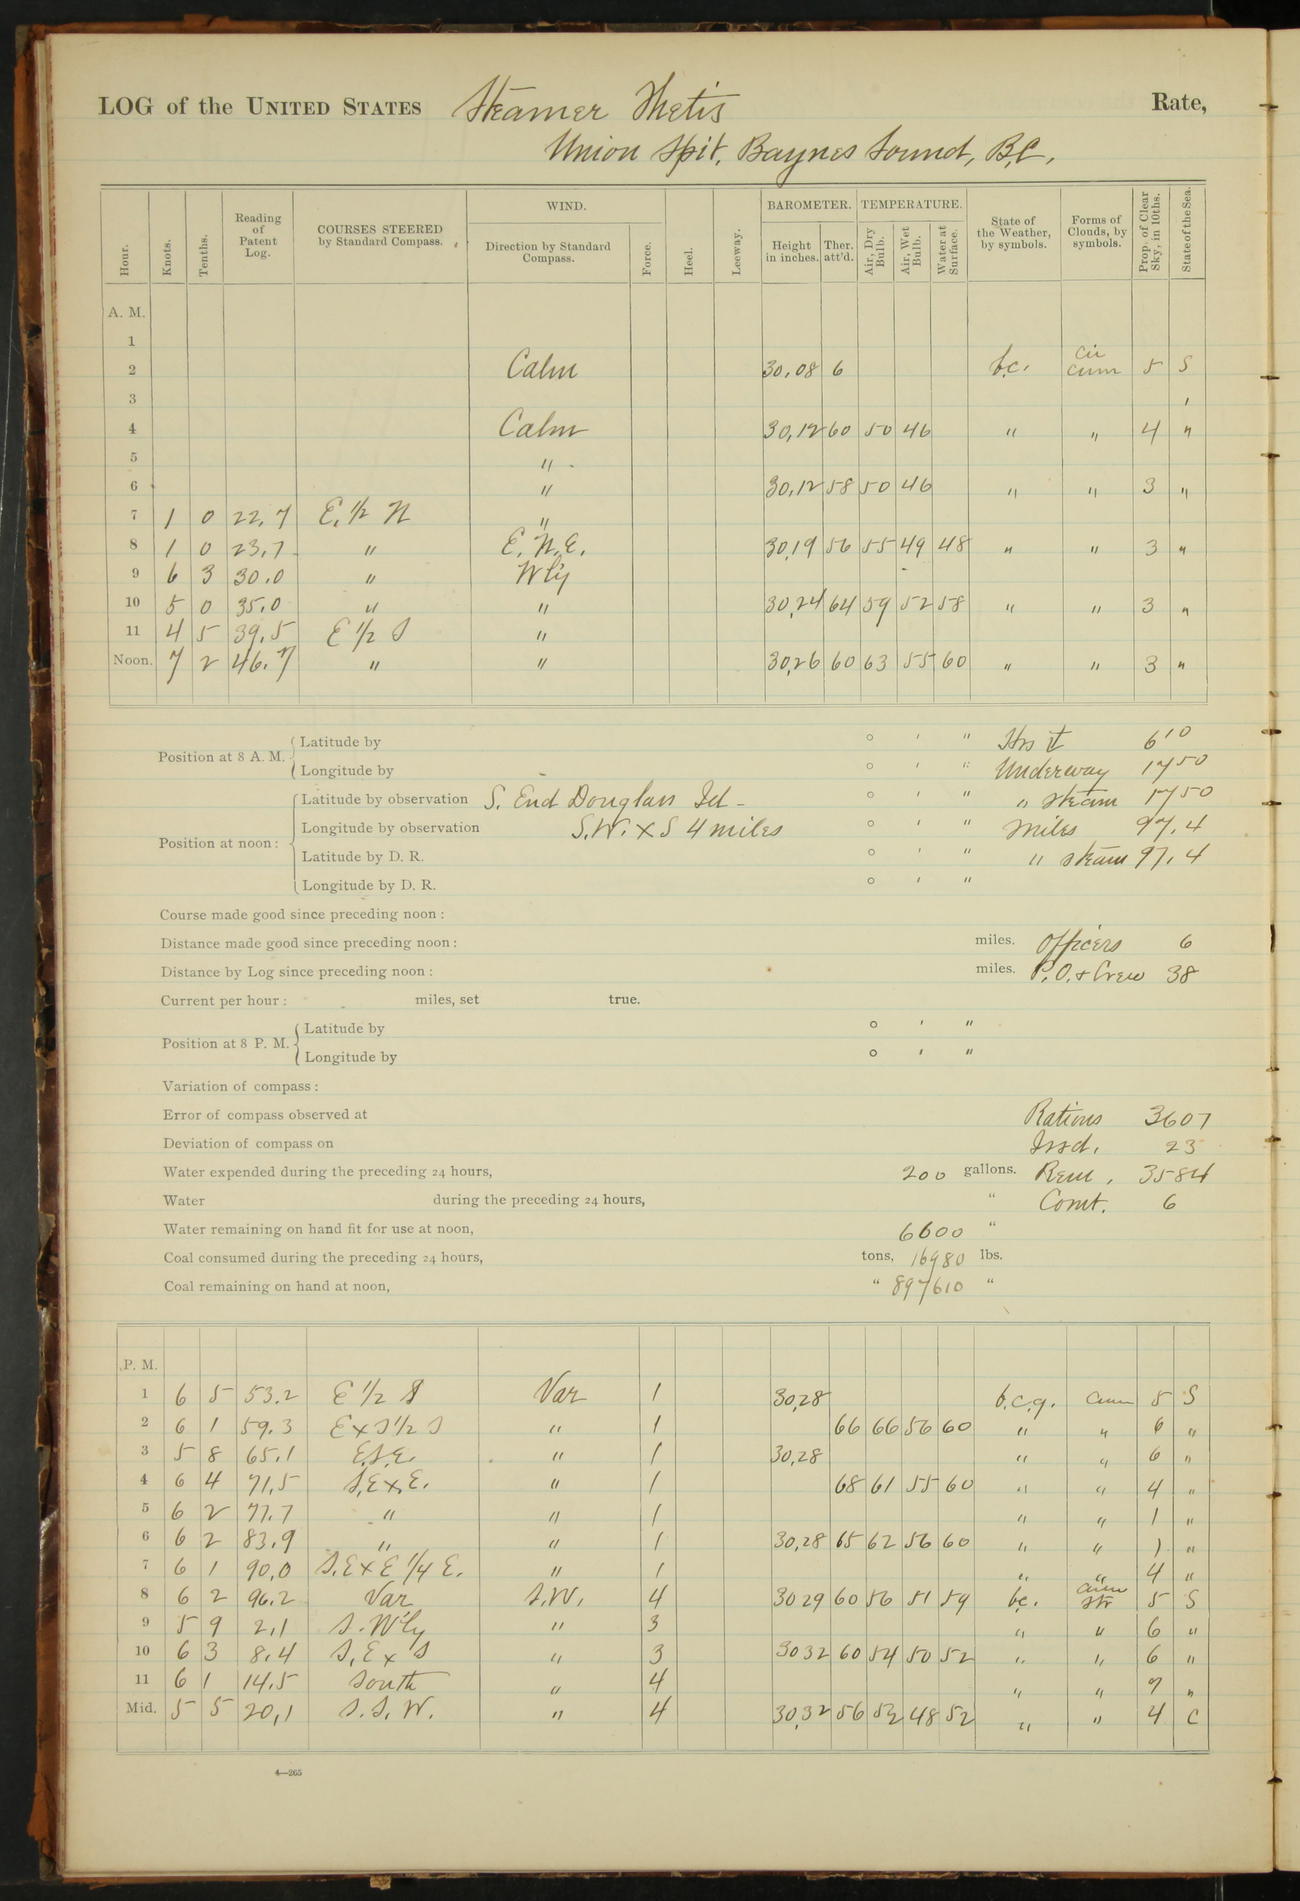 LOG of the UNITED STATES Steamer Thetis Rate,
Union Spit, Baynes Sound, B.C.
Hour. Knots. Tenths. Reading of Patent Log. COURSES STEERED by Standard Compass. WIND. Direction by Standard Compass. Force. Heel. Leeway. BAROMETER. Height in inches. Ther. att'd. TEMPERATURE. Air, Dry Bulb. Air, Wet Bulb. Water at Surface. State of the Weather, by symbols. Forms of Clouds, by symbols. Prop. of Clear Sky, in 10ths. State of the Sea.
A. M.
1
2 Calm 30,08 6 b.c. Cir Cum 5 S
3
4 Calm 30,12 60 50 46 " " 4 "
5 "
6 " 30,12 58 50 46 " " 3 "
7 1 0 22,7 E. 1/2 N "
8 1 0 23,7 " E. N. E. 30,19 56 55 49 48 " " 3 "
9 6 3 30.0 " W'ly
10 5 0 35.0 " " 30,24 64 59 52 58 " " 3 "
11 4 5 39,5 E 1/2 S "
Noon. 7 2 46.7 " " 30,26 60 63 55 60 " " 3 "
Position at 8 A. M. Latitude by ° ' " Hrs 610
Longitude by ° ' " Underway 1750
Position at noon: Latitude by observation S. End Douglass Isl - ° ' " " steam 1750
Longitude by observation S.W. x S 4 miles ° ' " Miles 97.4
Latitude by D. R. ° ' " " steam 97.4
Longitude by D. R. ° ' "
Course made good since preceding noon:
Distance made good since preceding noon: miles. Officers 6
Distance by Log since preceding noon: miles. P.O. & Crew 38
Current per hour: miles, set true.
Position at 8 P. M. Latitude by ° ' "
Longitude by ° ' "
Variation of compass:
Error of compass observed at Rations 3607
Deviation of compass on Issd. 23
Water expended during the preceding 24 hours, 200 gallons. Rem. 3584
Water during the preceding 24 hours, " Comt. 6
Water remaining on hand fit for use at noon, 6600 "
Coal consumed during the preceding 24 hours, tons, 16980 lbs.
Coal remaining on hand at noon, " 897610 "
P. M.
1 6 5 53.2 E 1/2 S Var 1 30,28 b.c.g. Cum 5 S
2 6 1 59.3 E x S 1/2 S " 1 66 66 56 60 " " 6 "
3 5 8 65.1 E.S.E. " 1 30,28 " " 6 "
4 6 4 71,5 S.E x E. " 1 68 61 55 60 " " 4 "
5 6 2 77.7 " " 1 " " 1 "
6 6 2 83.9 " " 1 30,28 65 62 56 60 " " 1 "
7 6 1 90,0 S.E x E 1/4 E. " 1 " " 4 "
8 6 2 96.2 Var S.W. 4 30 29 60 56 51 59 bc. Cum Str 5 S
9 5 9 2,1 S. W'ly " 3 " " 6 "
10 6 3 8.4 S, E x S " 3 30 32 60 54 50 52 " " 6 "
11 6 1 14.5 South " 4 " " 7 "
Mid. 5 5 20,1 S. S. W. " 4 30,32 56 52 48 52 " " 4 C
4—265